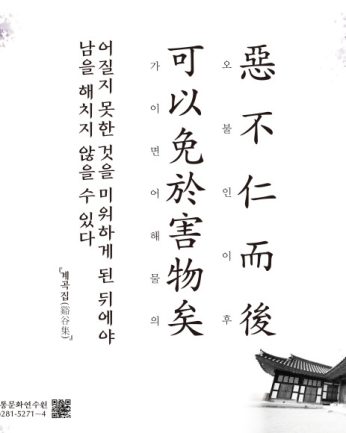 惡不仁而後
오불인이후
可以免於害物矣
가이면어해물의
어질지 못한 것을 미워하게 된 뒤에야
남을 해치지 않을 수 있다
『계곡집(谿谷集)』
통문화연수원
281-5271~4